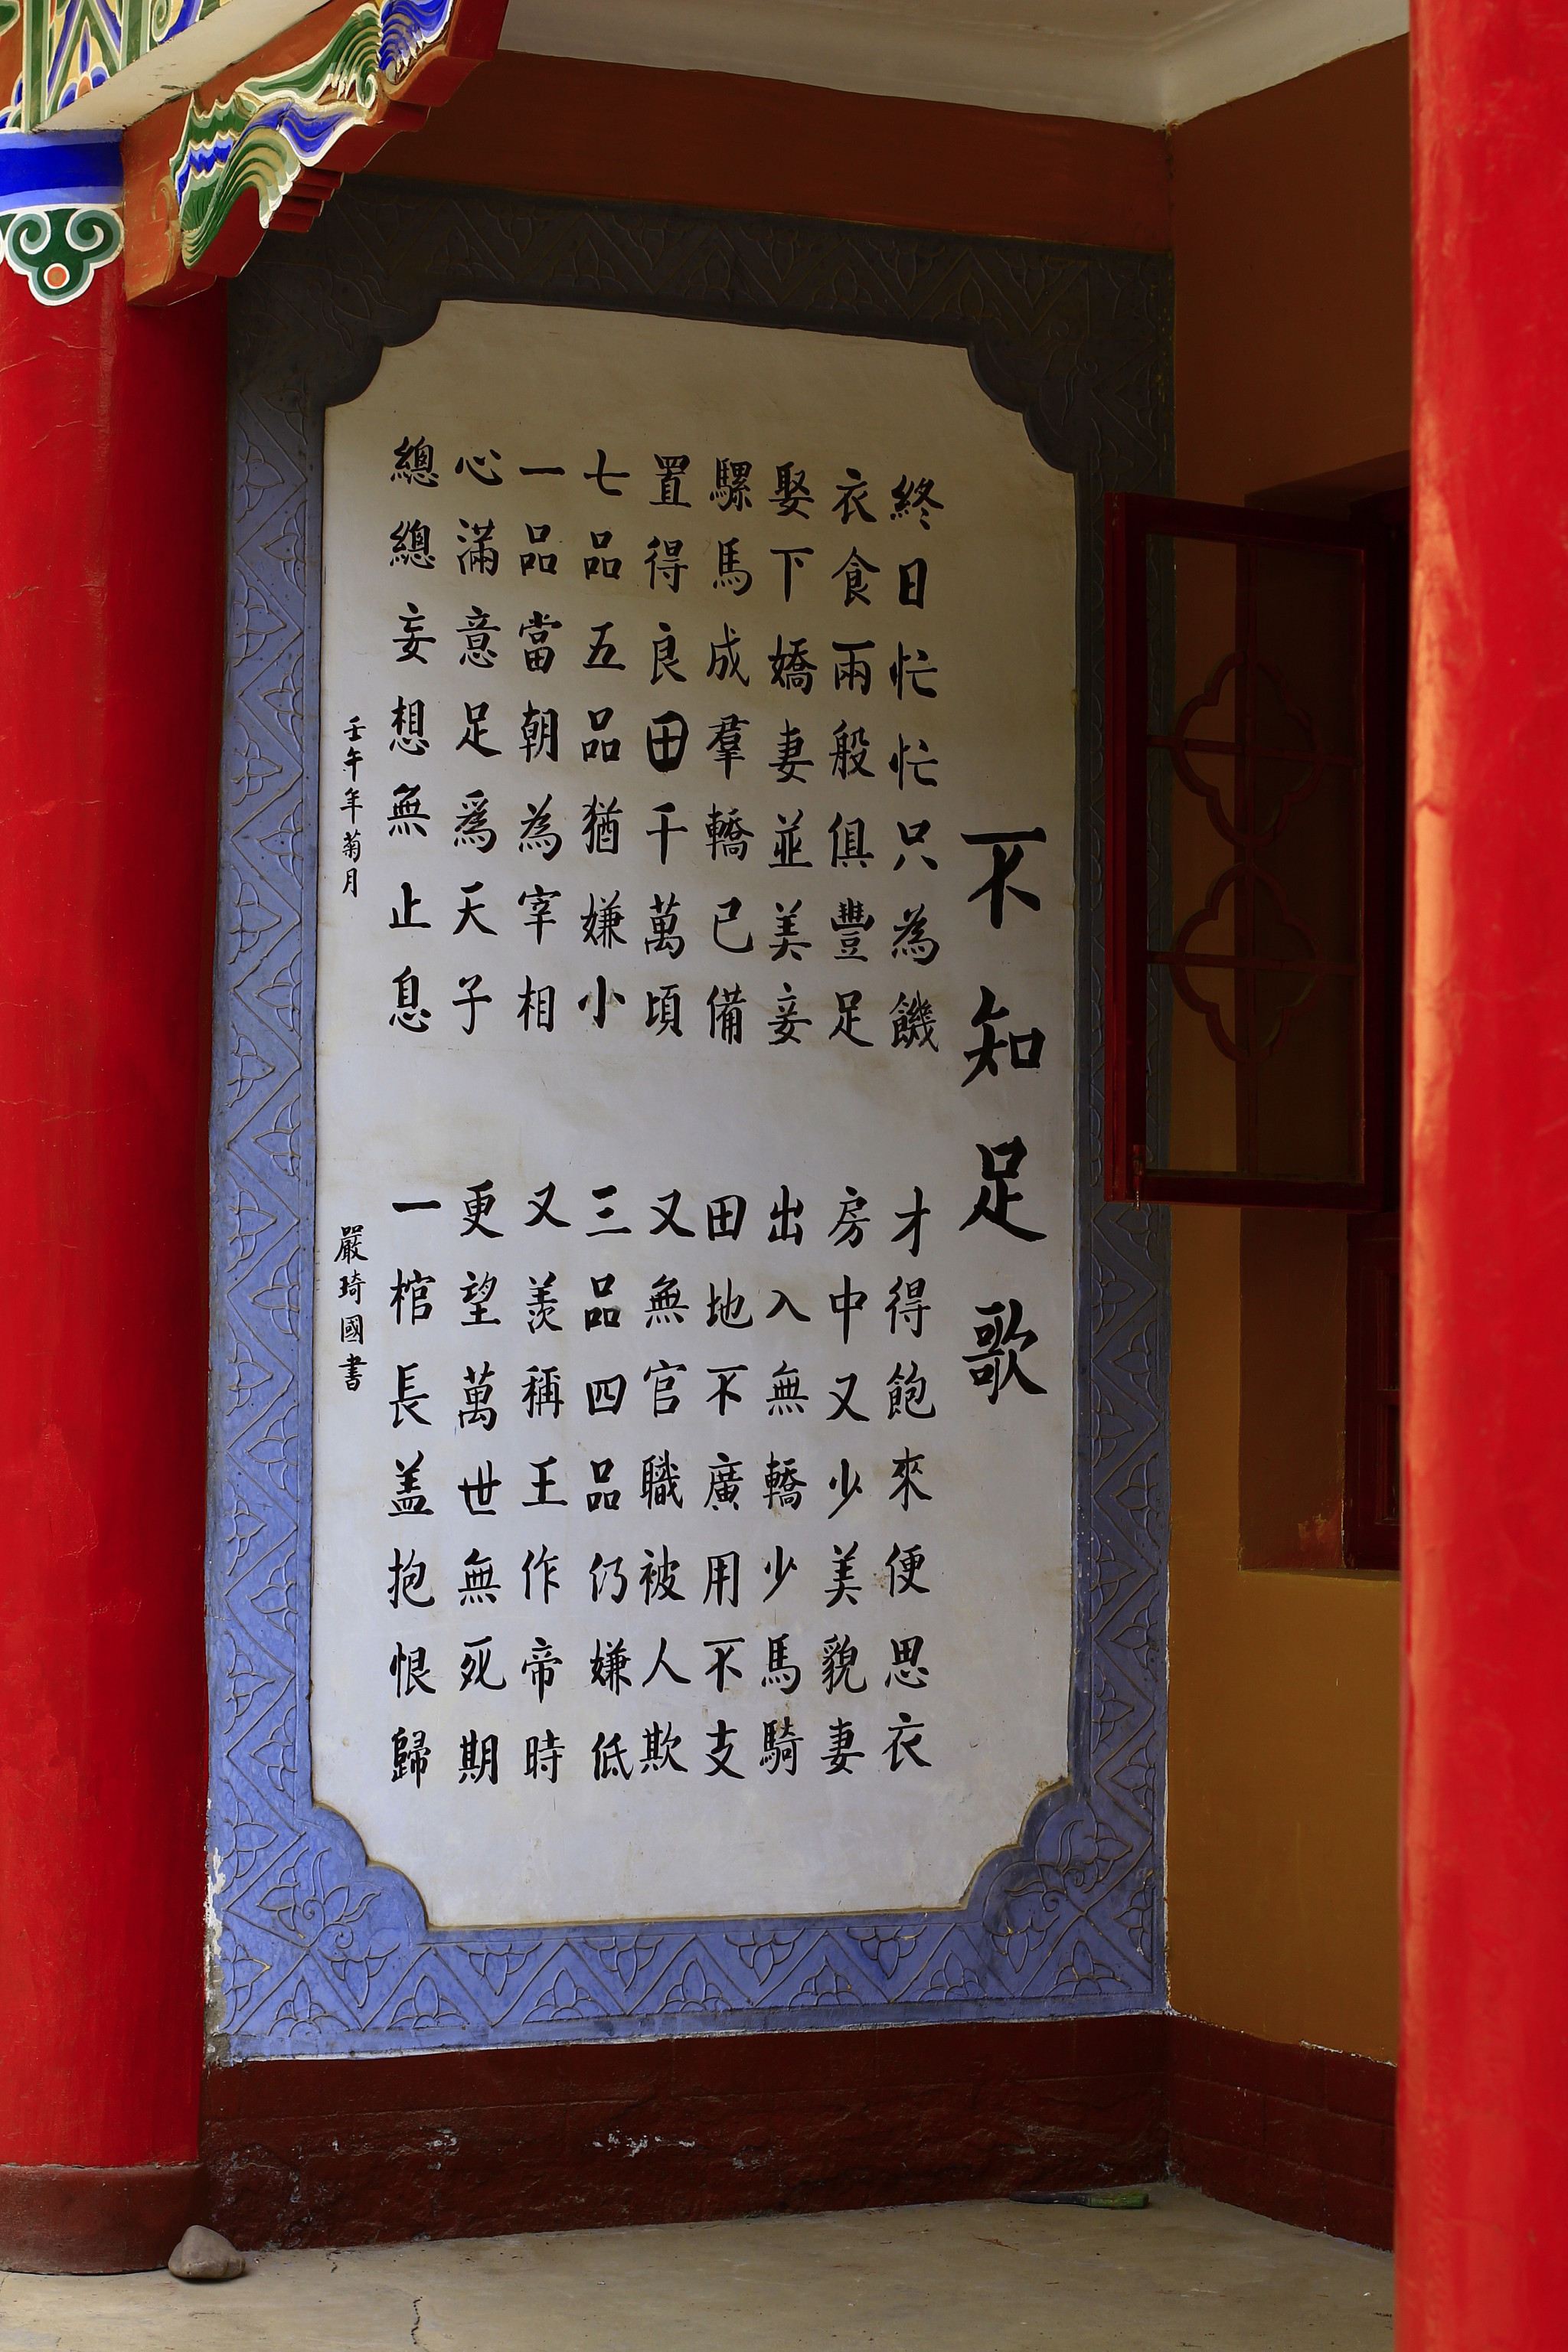 不知足歌
終日忙忙只為饑
才得飽來便思衣
衣食兩般俱豐足
房中又少美貌妻
娶下嬌妻並美妾
出入無轎少馬騎
騾馬成羣轎已備
田地不廣用不支
置得良田千萬頃
又無官職被人欺
七品五品猶嫌小
三品四品仍嫌低
一品當朝為宰相
又羨稱王作帝時
心滿意足爲天子
更望萬世無死期
總總妄想無止息
一棺長盖抱恨歸
壬午年菊月
嚴琦國書